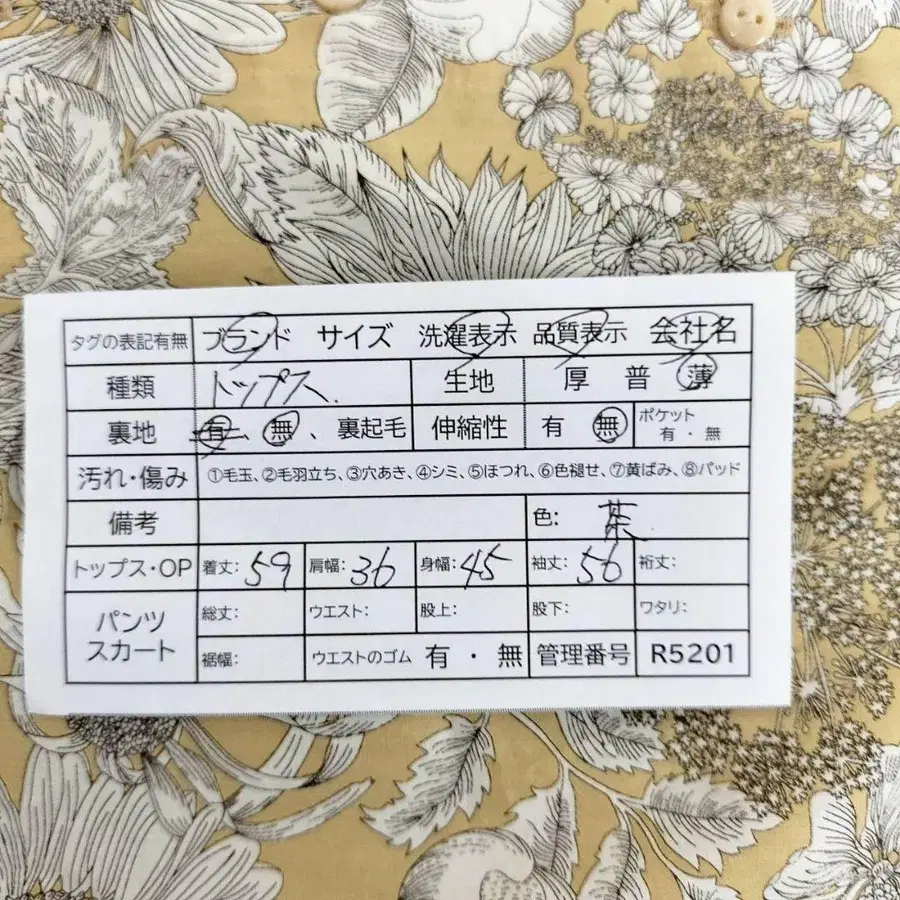 タグの表記有無 ブランド サイズ 洗濯表示 品質表示 会社名
種類 トップス. 生地 厚 普 薄
裏地 有、無、裏起毛 伸縮性 有 無 ポケット 有・無
汚れ・傷み ①毛玉、②毛羽立ち、③穴あき、④シミ、⑤ほつれ、⑥色褪せ、⑦黄ばみ、⑧パッド
備考 色: 茶
トップス・OP 着丈: 59 肩幅: 36 身幅: 45 袖丈: 56 裄丈:
パンツ スカート 総丈: ウエスト: 股上: 股下: ワタリ:
裾幅: ウエストのゴム 有・無 管理番号 R5201